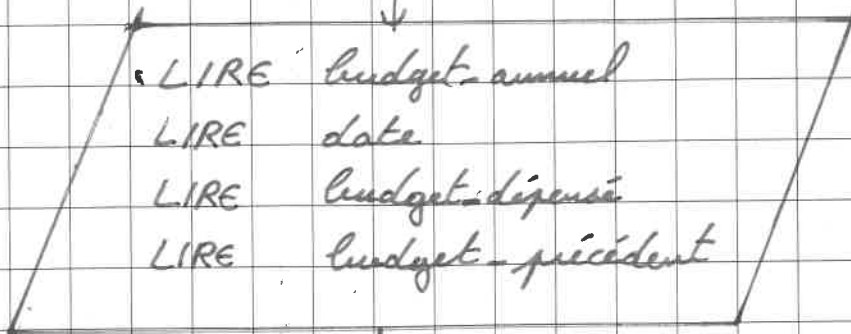 LIRE budget-annuel
LIRE date
LIRE budget-dépensé
LIRE budget-précédent